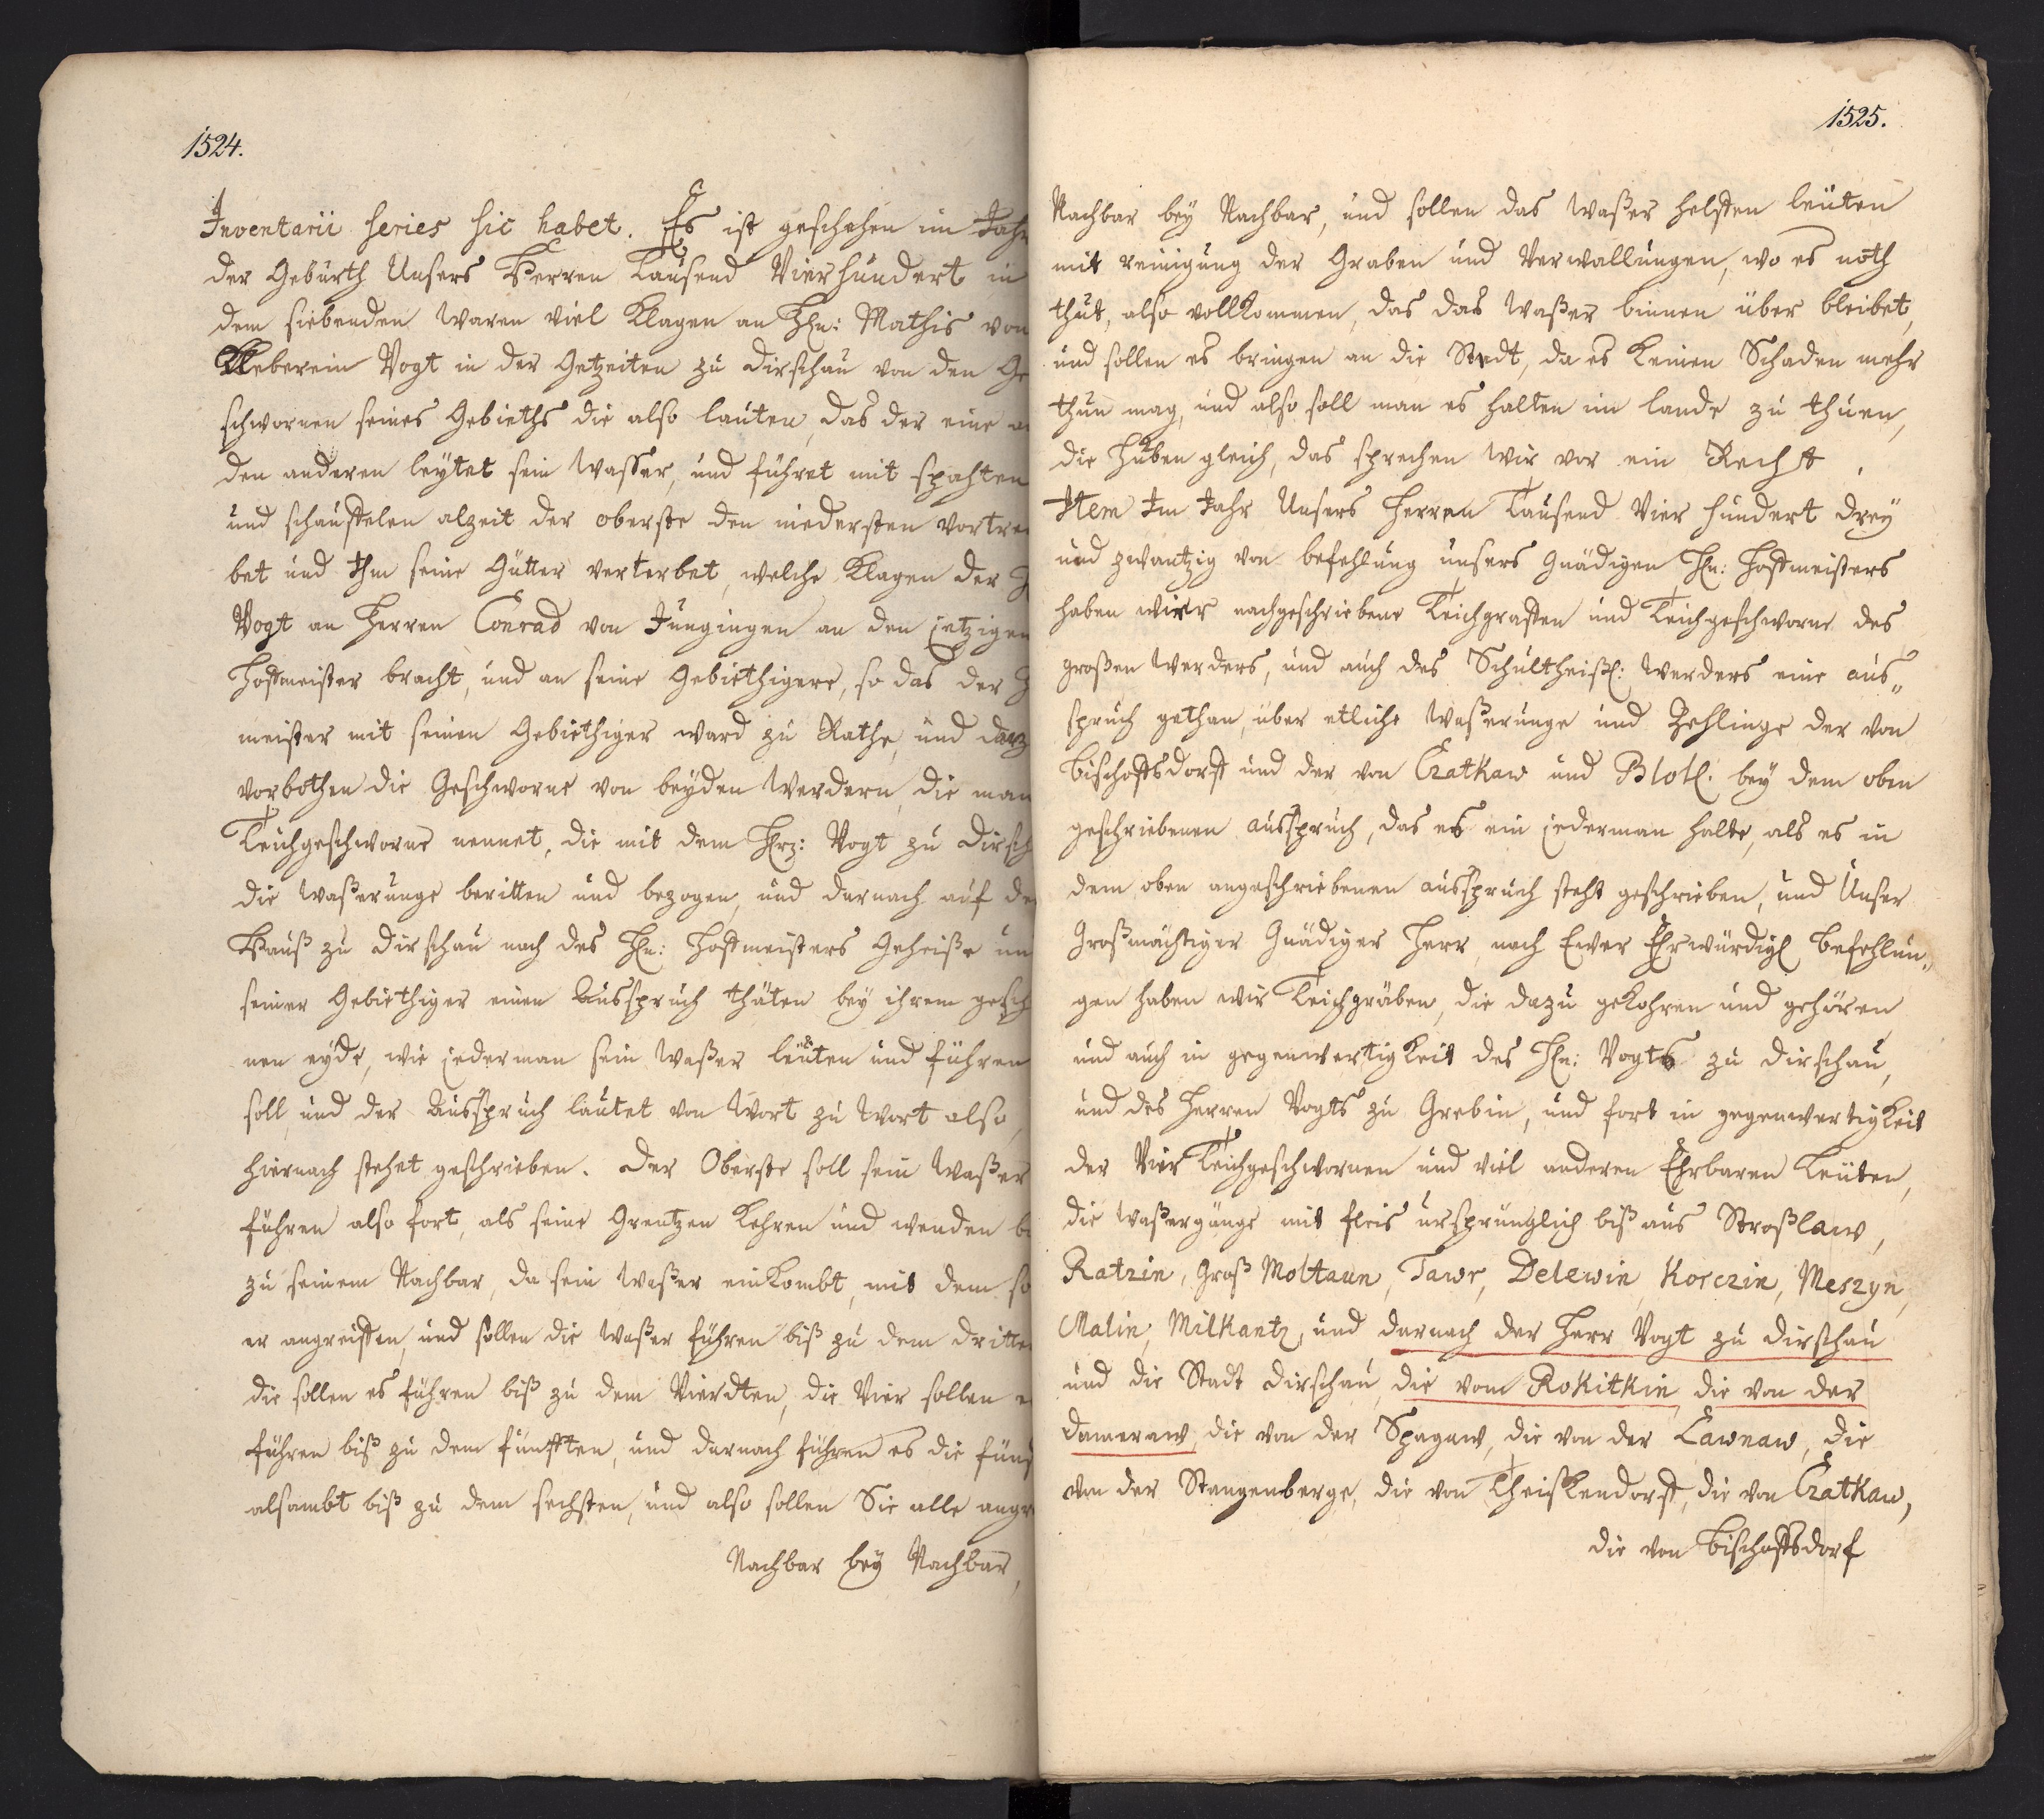 1524.
Inventarii series sic habet. Es ist geschehen im Jahr
der Gebürth Unsers Herren Tausend Vierhundert in
dem siebenden waren viel Klagen an Hℓn: Mathis von
Beberein Vogt in der Getzeiten zu Dirschau von den Ge
schwornen seines Gebieths die also lauten, das der eine a
den anderen leÿtet sein Wasser, und führet mit spathen
und schauffelen alzeit der oberste den niedersten vortrei
bet und Ihm seine Gütter verterbet, welche Klagen der H
Vogt an Herren Conrad von Jungingen an den ietzigen
Hoffmeister bracht, und an seine Gebiethigere, so das der H
meister mit seinen Gebiethiger ward zu Rathe, und darz
vorbothen die Geschworne von beyden Werdern, die man
Teichgeschworne nennet, die mit dem Hrz: Vogt zu Dirsch
die Waßerunge beritten und bezogen, und darnach auf de
Hauß zu Dirschau nach des Hℓn: Hoffmeisters Geheiße un
seiner Gebiethiger einen Ausspruch thäten bey ihrem gesch
nen eyde, wie iederman sein Waßer leüten und führen
soll, und der Ausspruch lautet von Wort zu Wort also,
hiernach stehet geschrieben. Der Oberste soll sein Waßer
führen also fort, als seine Grentzen kehren und wenden bi
zu seinem Nachbar, da sein Waßer einkombt, mit dem so
er angreiffen, und sollen die Waßer führen biß zu dem dritte
die sollen es führen biß zu dem Vierdten, die Vier sollen e
führen biß zu dem fünfften, und darnach führen es die fünf
alsambt biß zu dem sechsten, und also sollen Sie alle angre
Nachbar bey Nachbar,
1525.
Nachbar bey Nachbar, und sollen das Waßer helffen leüten
mit reinigung der Graben und Verwallungen, wo es noth
thut, also vollkommen, das das Waßer binnen über bleibet,
und sollen es bringen an die Stedt, da es keinen Schaden mehr
thun mag, und also soll man es halten im lande zu thuen,
die Huben gleich, das sprechen wir vor ein Recht,
Item Im Jahr Unsers Herren Tausend Vier hundert drey
und zwantzig von befehlung unsers Gnädigen Hℓn: Hoffmeisters
haben wier nachgeschriebene Teichgraffen und Teichgeschworne des
großen Werders, und auch des Schultheißℓ: Werders eine aus„
spruch gethan, über etliche Waßerunge und Zehlinge der von
Bischoffsdorff und der von Czatkaw und Blotℓ: bey dem oben
geschriebenen ausspruch, das es ein iederman halte, als es in
dem oben angeschriebenen ausspruch steht geschrieben, und Unser
Großmächtiger Gnädiger Herr, nach Ewer Ehrwürdigℓ Befehlun„
gen haben wir Teichgräben, die dazu gekohren und gehören
und auch in gegenwertigkeit des Hℓn: Vogts zu Dirschau,
und des Herren Vogts zu Grebin, und fort in gegenwertigkeit
der Vier Teichgeschwornen und viel anderen Ehrbaren Leüten,
die Waßergänge mit fleis ursprünglich biß aus Stroßlaw,
Ratzin, Groß Moltaun, Tawr, Delewin, Korczin, Meszyn,
Malin, Milkantz, und darnach der Herr Vogt zu Dirschau
und die Stadt Dirschau, die vom Rokitkin, die von der
Dameraw, die von der Spagaw, die von der Lawnaw, die
von der Stangenberge, die von Theißkendorff, die von Czatkaw,
die von Bischoffsdorf